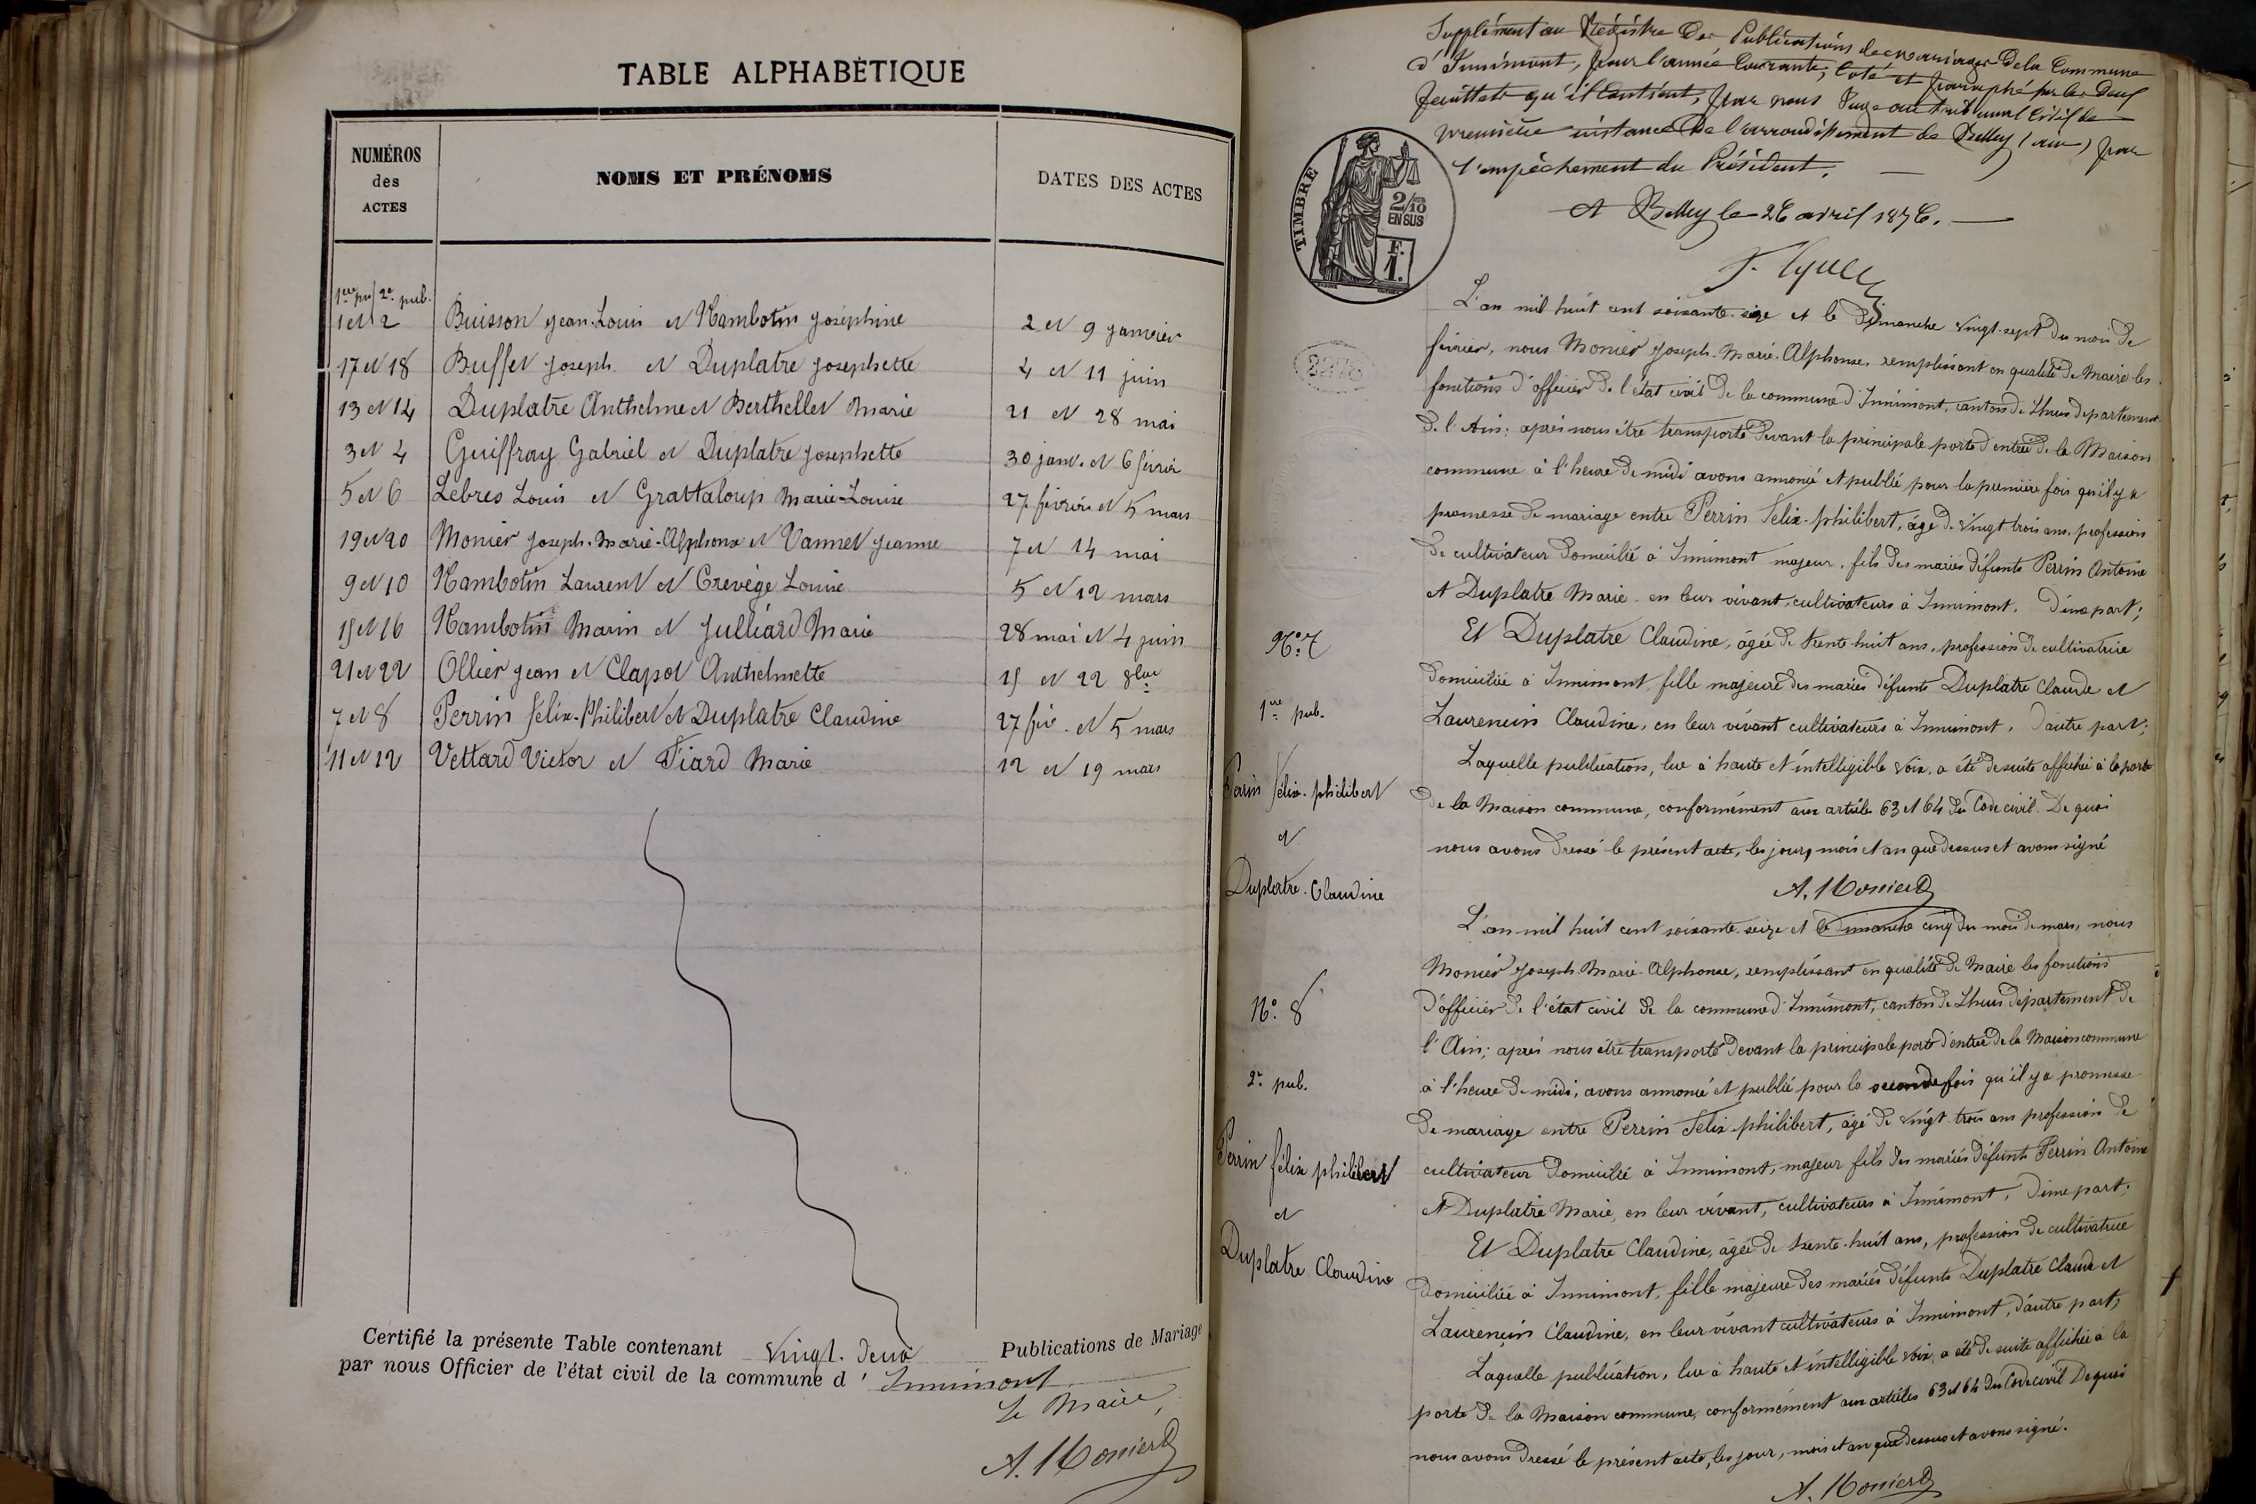 TABLE ALPHABÉTIQUE
NUMÉROS des ACTES
NOMS ET PRÉNOMS
DATES DES ACTES
1ere pu 2e pub.
1 et 2 Buisson Jean-Louis et Nambotin Joséphine 2 et 9 janvier
17 et 18 Buffet Joseph et Duplatre Josephette 4 et 11 juin
13 et 14 Duplatre Anthelme et Berthellet Marie 21 et 28 mai
3 et 4 Guiffray Gabriel et Duplatre Josephette 30 janv. et 6 février
5 et 6 Lebres Louis et Grattaloup Marie-Louise 27 février et 5 mars
19 et 20 Monier Joseph-Marie-Alphonse et Vannet Jeanne 7 et 14 mai
9 et 10 Nambotin Laurent et Crevège Louise 5 et 12 mars
15 et 16 Nambotin Marin et Julliard Marie 28 mai et 4 juin
21 et 22 Ollier Jean et Clapot Anthelmette 15 et 22 8bre
7 et 8 Perrin Félix-Philibert et Duplatre Claudine 27 fév. et 5 mars
11 et 12 Vettard Victor et Tiard Marie 12 et 19 mars
Certifié la présente Table contenant vingt-deux Publications de Mariage
par nous Officier de l'état civil de la commune d' Innimont
Le Maire,
A. Monier
Supplément au Régistre des Publications de mariages de la Commune
d'Innimont, pour l'année courante, coté et paraphé par les deux
feuillets qu'il contient, par nous Juge au tribunal civil de
première instance de l'arrondissement de Belley (ain) pour
l'empêchement du Président.
A Belley le 26 avril 1876.
TIMBRE
2/10 EN SUS
F. 1.
L'an mil huit cent soixante-seize et le Dimanche vingt-sept du mois de
février, nous Monier Joseph-Marie-Alphonse, remplissant en qualité de Maire les
fonctions d'officier de l'état civil de la commune d'Innimont, canton de Lhuis département
de l'Ain; après nous être transporté devant la principale porte d'entrée de la Maison
commune à l'heure de midi avons annoncé et publié pour la première fois qu'il y a
promesse de mariage entre Perrin Felix-philibert, âgé de vingt trois ans, profession
de cultivateur domicilié à Innimont majeur, fils des mariés défunts Perrin Antoine
et Duplatre Marie en leur vivant, cultivateurs à Innimont. D'une part;
N° 7
Et Duplatre Claudine, âgée de trente-huit ans, profession de cultivatrice
domiciliée à Innimont, fille majeure des mariés défunts Duplatre Claude et
1ere pub.
Laurencin Claudine, en leur vivant cultivateurs à Innimont, d'autre part;
Laquelle publication, lue à haute et intelligible voix, a été de suite affichée à la porte
Perrin félix-philibert
de la Maison commune, conformément aux articles 63 et 64 du Code civil. De quoi
et
nous avons dressé le présent acte, les jours, mois et an que dessus et avons signé
Duplatre Claudine
A. Monier
L'an mil huit cent soixante-seize et le Dimanche cinq du mois de mars, nous
Monier Joseph-Marie-Alphonse, remplissant en qualité de Maire les fonctions
N° 8
d'officier de l'état civil de la commune d'Innimont, canton de Lhuis département de
l'Ain; après nous être transporté devant la principale porte d'entrée de la Maison commune
2e pub.
à l'heure de midi, avons annoncé et publié pour la seconde fois qu'il y a promesse
de mariage entre Perrin Felix-philibert, âgé de vingt-trois ans profession de
Perrin félix philibert
cultivateur domicilié à Innimont, majeur fils des mariés défunts Perrin Antoine
et
et Duplatre Marie, en leur vivant, cultivateurs à Innimont, d'une part;
Duplatre Claudine
Et Duplatre Claudine, âgée de trente-huit ans, profession de cultivatrice
domiciliée à Innimont, fille majeure des mariés défunts Duplatre Claude et
Laurencin Claudine, en leur vivant cultivateurs à Innimont, d'autre part;
Laquelle publication, lue à haute et intelligible voix, a été de suite affichée à la
porte de la Maison commune, conformément aux articles 63 et 64 du Code civil De quoi
nous avons dressé le présent acte, les jour, mois et an que dessus et avons signé.
A. Monier